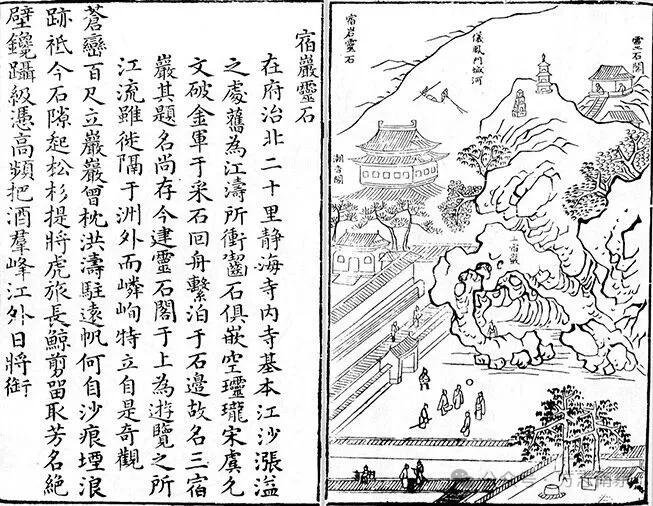 宿巖靈石
在府治北二十里靜海寺内寺基本江沙漲溢
之處舊為江濤所衝齧石俱嵌空瓏瓏宋虞允
文破金軍于采石回舟繫泊于石邊故名三宿
巖其題名尚存今建靈石閣于上為遊覽之所
江流雖徙隔于洲外而嶙峋特立自是奇觀
蒼巒百尺立巖巖曾枕洪濤駐遠帆何自沙痕堙浪
跡祇今石隙起松杉提將虎旅長鯨剪留取芳名絕
壁鑱躡級憑高頻把酒羣峰江外日將銜
宿岩靈石
儀鳳門城河
靈石閣
潮音閣
三宿巖
公众号